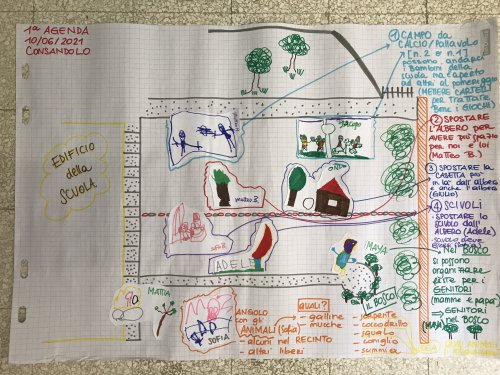 1ª AGENDA
10/06/2021
CONSANDOLO
EDIFICIO
della
SCUOLA
Jacopo
matteo B.
SOFIA B.
ADELE
MAYA
IL BOSCO
MATTIA
SOFIA
① CAMPO da
CALCIO/Pallavolo
[n. 2 e n. 1]
possono andarci
i Bambini della
scuola ma aperto
ad altri al pomeriggio
② SPOSTARE
L'ALBERO PER
AVERE più spazio
per noi e lui
(Matteo B.)
③ SPOSTARE la
CASETTA più
in là dall'albero
e anche l'albero
(GIULIO)
④ SCIVOLI
- SPOSTARE lo
scivolo dall'
ALBERO (Adele)
Nel BOSCO
si possono
organizzare
feste per i
GENITORI
(mamme e papà)
→ GENITORI
nel BOSCO
(MAYA)
ANGOLO
con gli
ANIMALI (Sofia)
- alcuni nel RECINTO
- altri liberi
quali?
- galline
- mucche
- serpente
- coccodrillo
- squalo
- coniglio
- scimmia